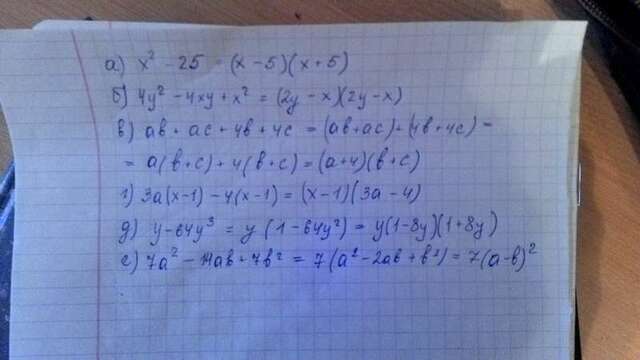 а) x² - 25 = (x - 5)(x + 5)
б) 4y² - 4xy + x² = (2y - x)(2y - x)
в) ab + ac + 4b + 4c = (ab + ac) + (4b + 4c) =
= a(b + c) + 4(b + c) = (a + 4)(b + c)
г) 3a(x - 1) - 4(x - 1) = (x - 1)(3a - 4)
д) y - 64y³ = y(1 - 64y²) = y(1 - 8y)(1 + 8y)
е) 7a² - 14ab + 7b² = 7(a² - 2ab + b²) = 7(a - b)²